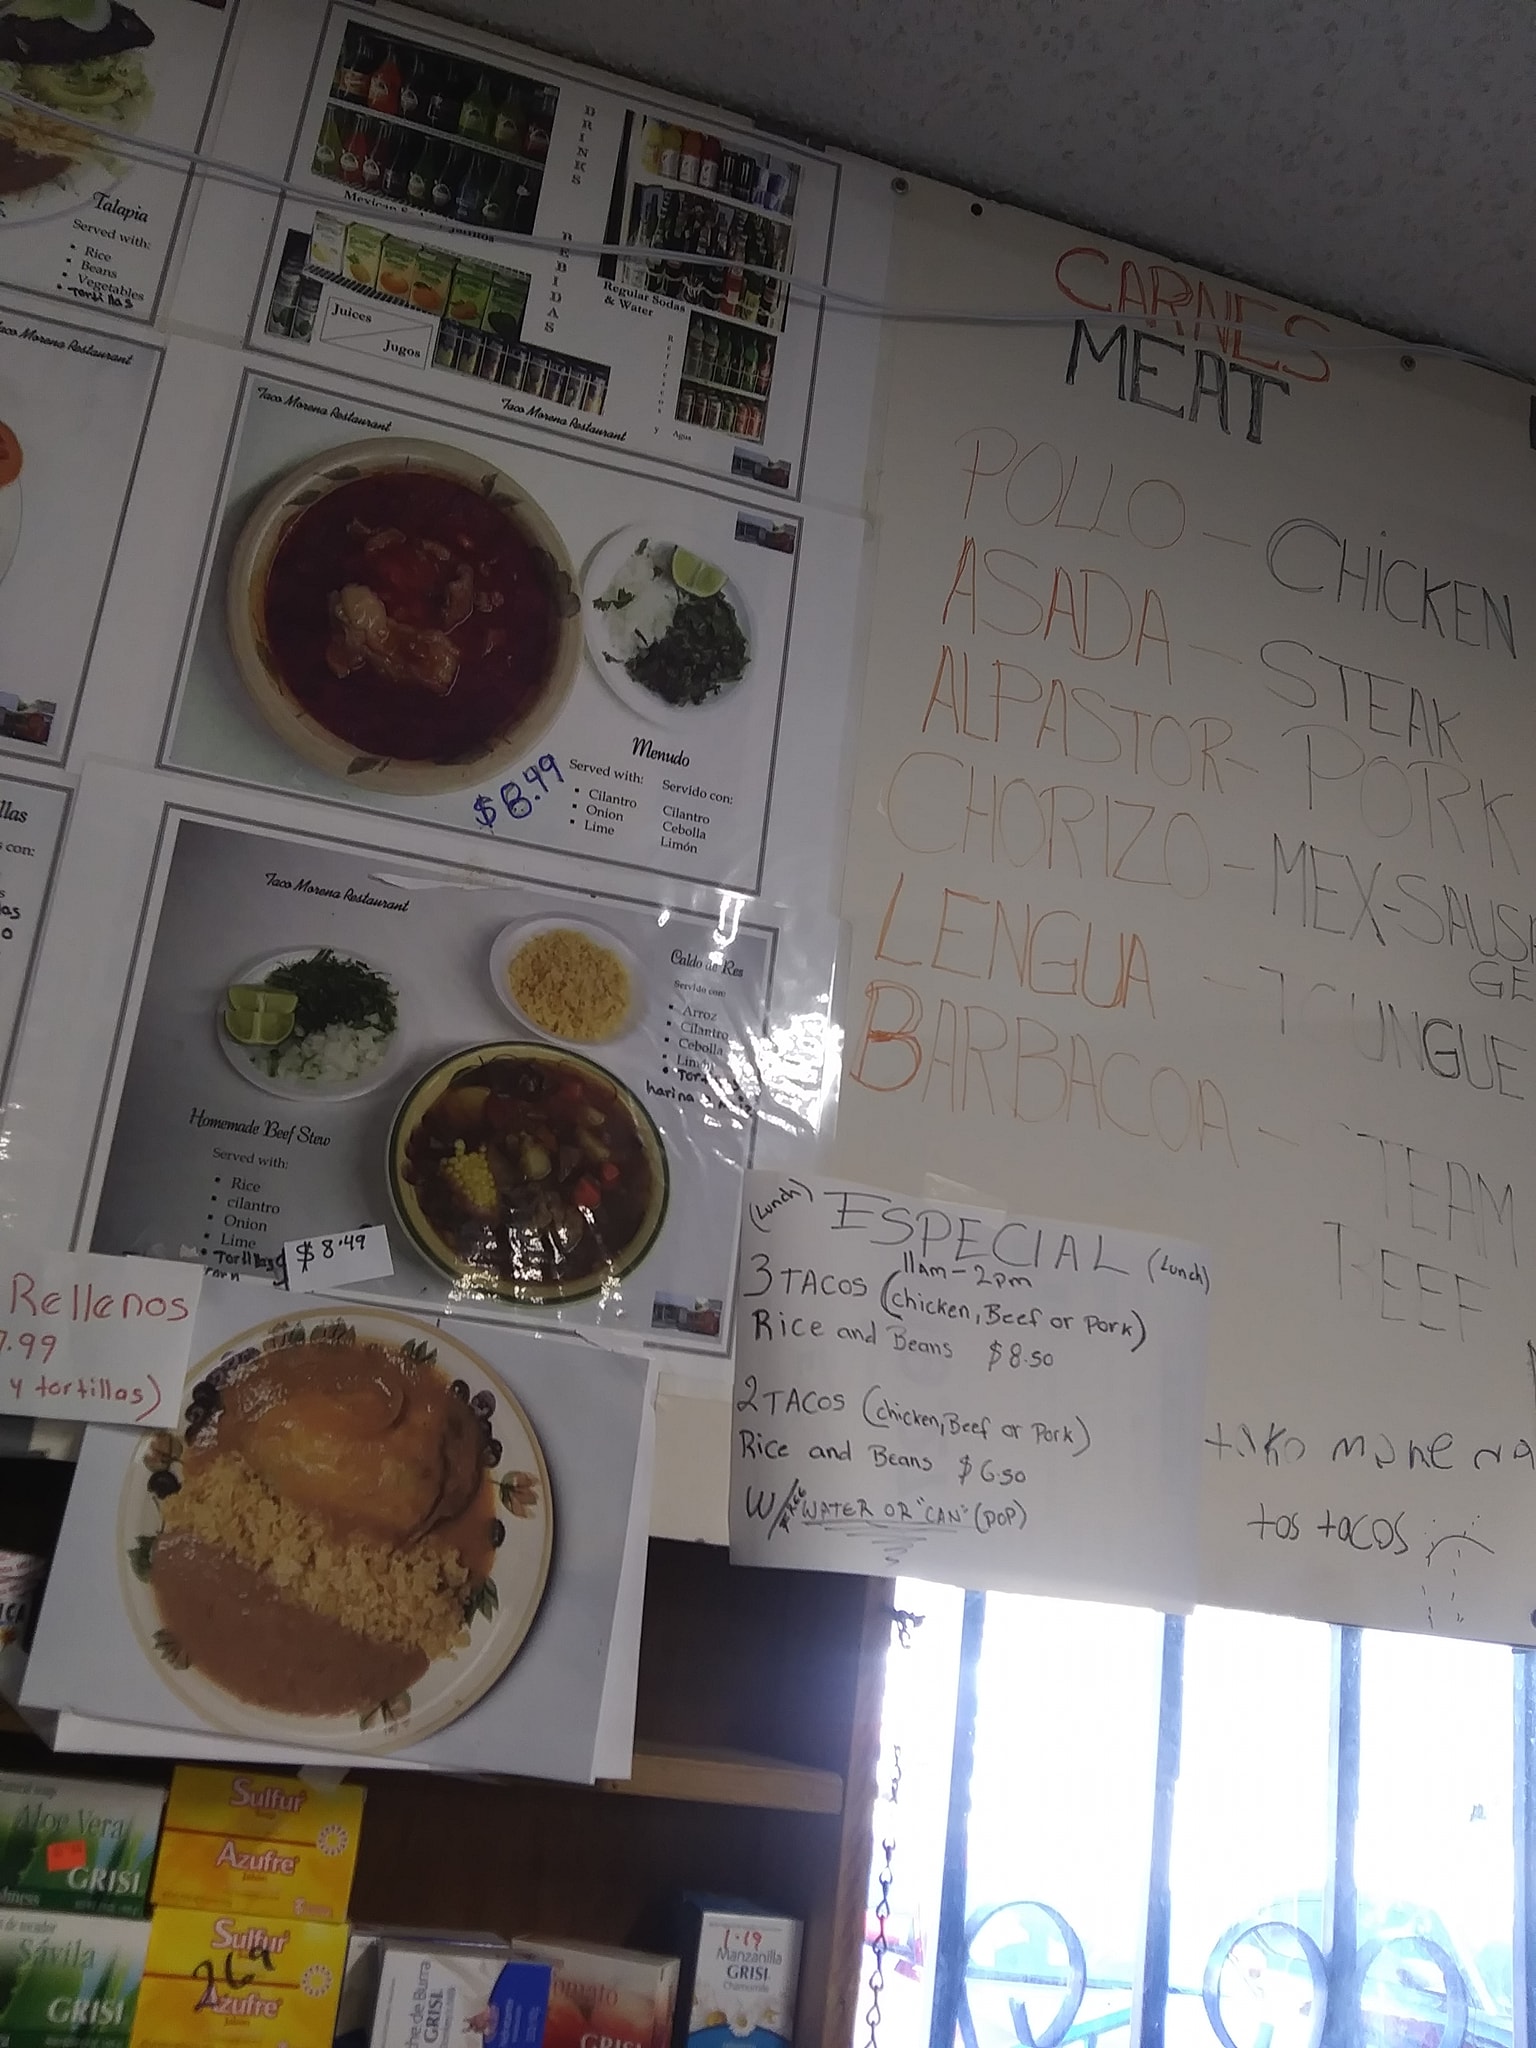 Talapia
Served with:
▪ Rice
▪ Beans
▪ Vegetables
• Tortillas
Taco Morena Restaurant
DRINKS
BEBIDAS
Regular Sodas
& Water
Refrescos y Agua
Juices
Jugos
Taco Morena Restaurant
Taco Morena Restaurant
Menudo
$8.49
Served with:
▪ Cilantro
▪ Onion
▪ Lime
Servido con:
Cilantro
Cebolla
Limón
Taco Morena Restaurant
Caldo de Res
Servido con:
▪ Arroz
▪ Cilantro
▪ Cebolla
▪ Limón
Homemade Beef Stew
Served with:
▪ Rice
▪ cilantro
▪ Onion
▪ Lime
• Tortillas
$8.49
Rellenos
7.99
y tortillas)
CARNES
MEAT
POLLO - CHICKEN
ASADA - STEAK
ALPASTOR - PORK
CHORIZO - MEX-SAUSA
GE
LENGUA - TOUNGUE
BARBACOA - TEAM
BEEF
(Lunch) ESPECIAL (Lunch)
11am - 2pm
3 TACOS (chicken, Beef or Pork)
Rice and Beans $8.50
2 TACOS (chicken, Beef or Pork)
Rice and Beans $6.50
W/FREE WATER OR "CAN" (POP)
tos tacos
Aloe Vera
GRISI
Sulfur
Azufre
Sávila
GRISI
Sulfur
2.69
Azufre
GRISI
GRISI
1.19
Manzanilla
GRISI
Chamomile